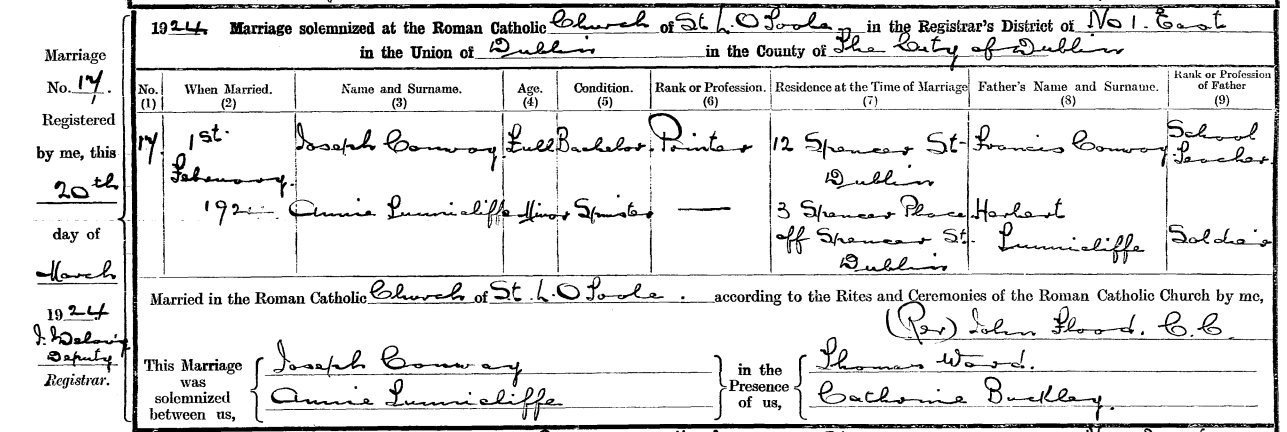 1924 Marriage solemnized at the Roman Catholic Church of St L. O'Toole, in the Registrar's District of No 1. East
in the Union of Dublin in the County of The City of Dublin
Marriage
No. 17.
Registered
by me, this
20th
day of
March
1924
Deputy
Registrar.
No. When Married. Name and Surname. Age. Condition. Rank or Profession. Residence at the Time of Marriage Father's Name and Surname. Rank or Profession of Father
(1) (2) (3) (4) (5) (6) (7) (8) (9)
17 1st February. 192 Joseph Conway Full Bachelor Printer 12 Spencer St Dublin Francis Conway School Teacher.
Annie Lunnicliffe Minor Spinster — 3 Spencer Place off Spencer St. Dublin Herbert Lunnicliffe Soldier
Married in the Roman Catholic Church of St. L. O'Toole. according to the Rites and Ceremonies of the Roman Catholic Church by me,
(Rev) John Flood. C.C.
This Marriage was solemnized between us,
Joseph Conway
Annie Lunnicliffe
in the Presence of us,
Thomas Ward.
Catherine Buckley.